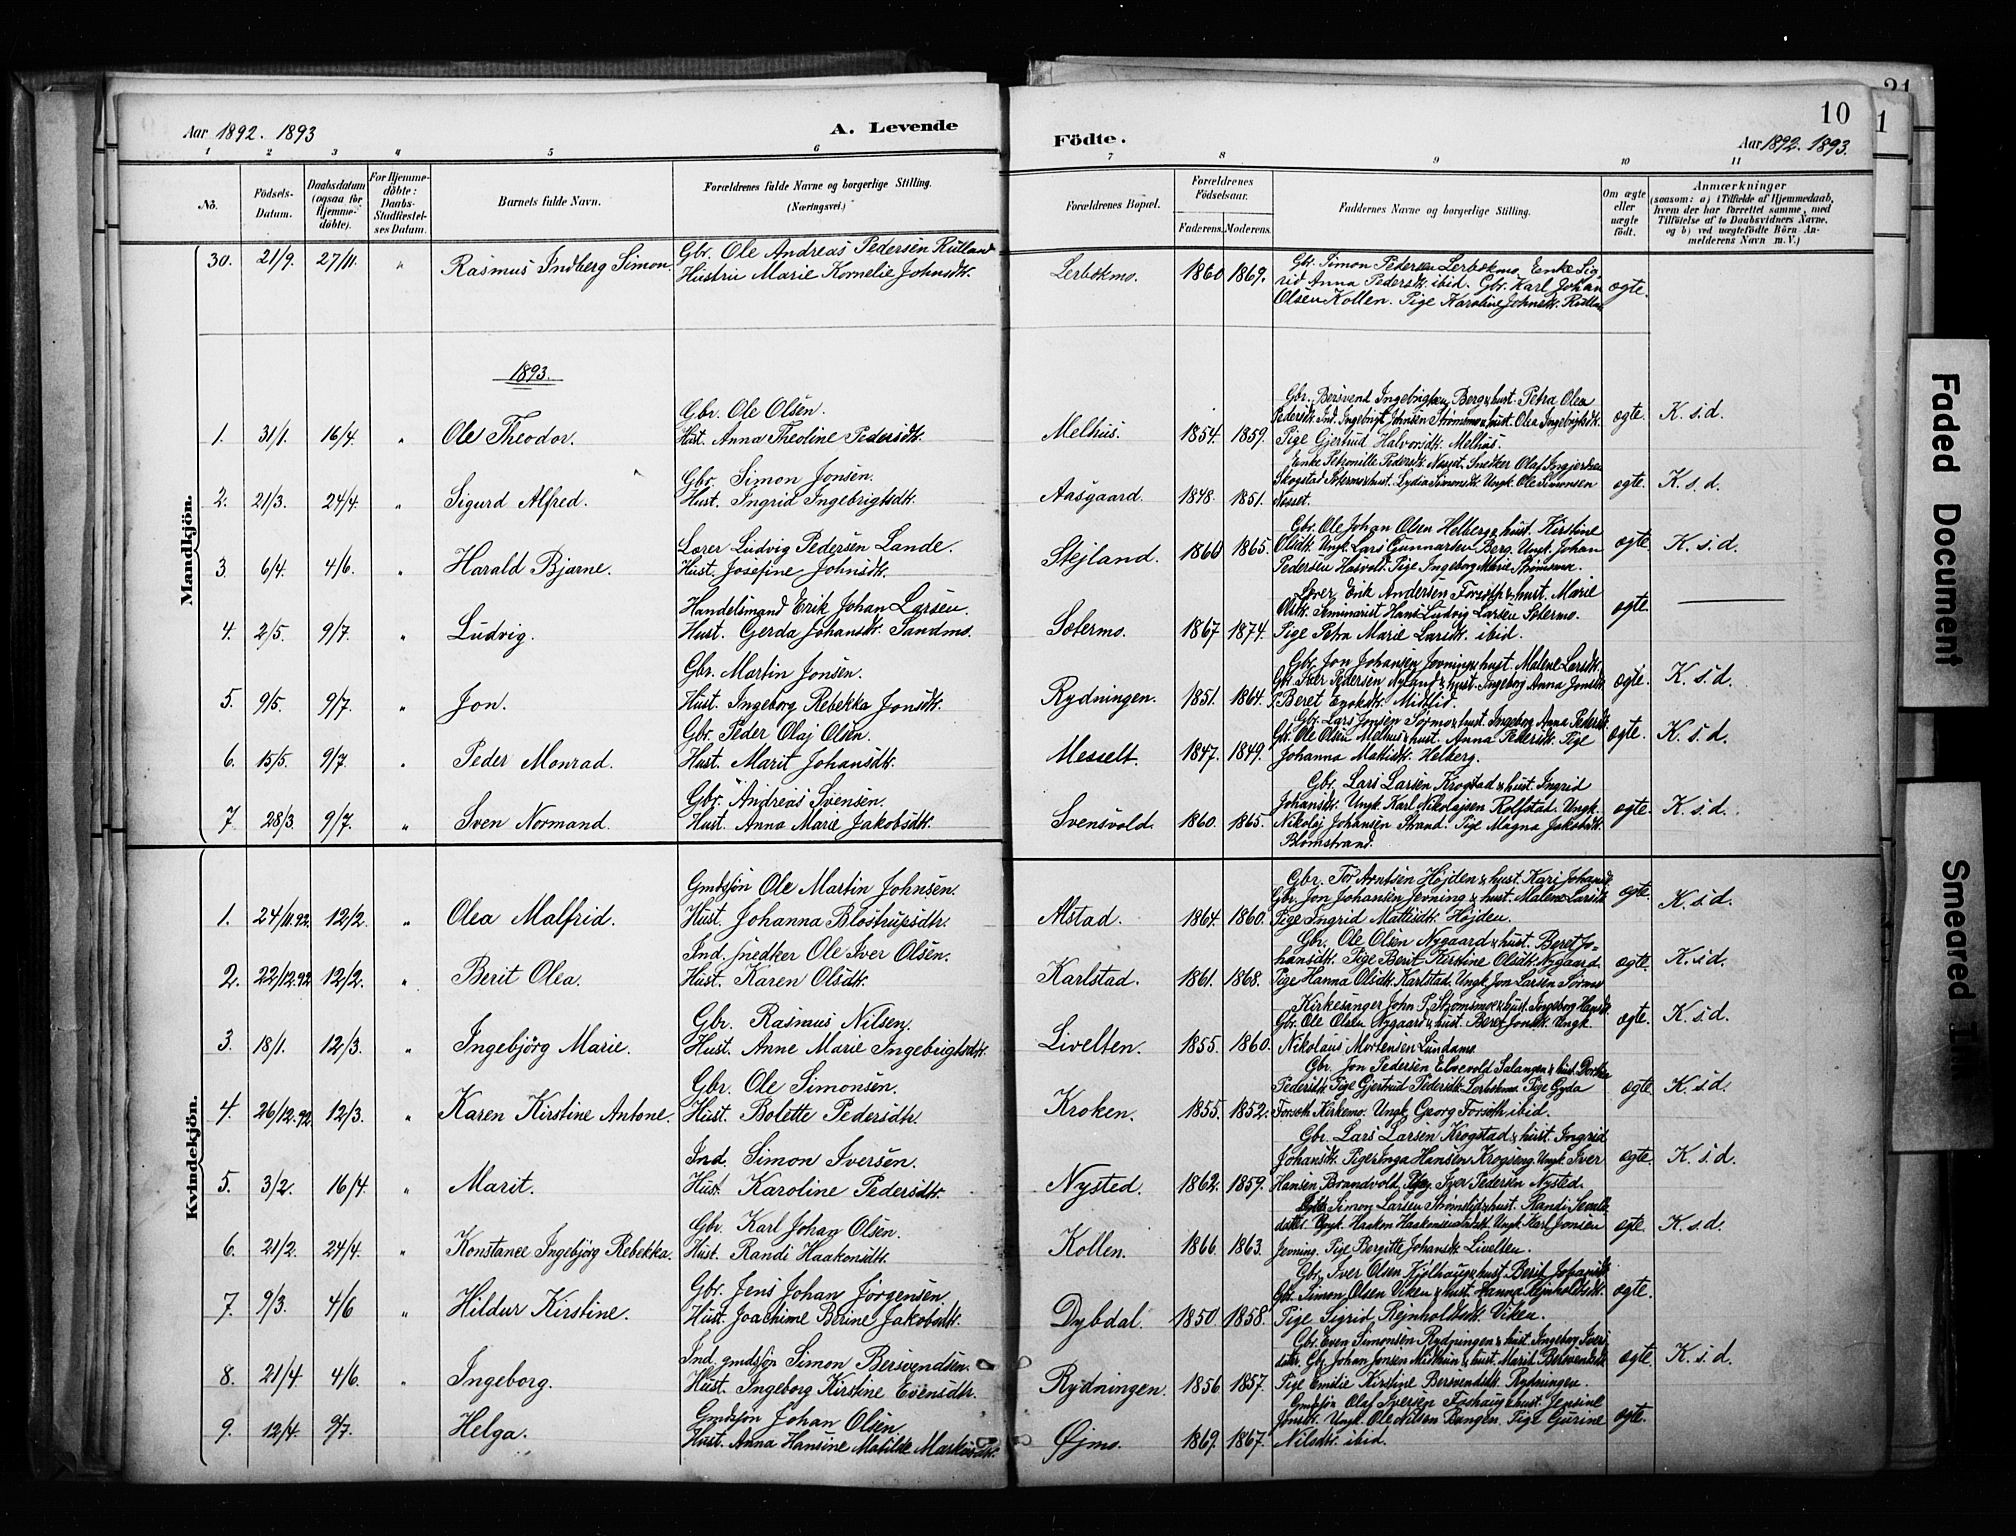 21
10
1
Aar 1892. 1893
A. Levende
Födte.
Aar 1892. 1893.
1 2 3 4 5 6 7 8 9 10 11
No.
Födsels-Datum.
Daabsdatum (ogsaa for Hjemme-döbte).
For Hjemme-döbte: Daabs-Stadfæstel-ses Datum.
Barnets fulde Navn.
Forældrenes fulde Navne og borgerlige Stilling. (Næringsvei.)
Forældrenes Bopæl.
Forældrenes Födselsaar.
Faderens. Moderens.
Faddernes Navne og borgerlige Stilling.
Om ægte eller uægte födt.
Anmærkninger
(saasom: a) i Tilfælde af Hjemmedaab, hvem der har forrettet samme, med Tilföielse af to Daabsvidners Navne, og b) ved uægtefödte Börn An-melderens Navn m. V.)
Mandkjön.
30. 21/9. 27/11. " Rasmus Indberg Simon.
Gbr. Ole Andreas Pedersen Rutland
Hustru Marie Kornelie Johnsdtr.
Lerbekmo. 1860 1869.
Gbr. Simon Pedersen Lerbekmo. Enke Sig-
rid Anna Pedersdtr. ibid. Gbr. Karl Johan
Olsen Kollen. Pige Karoline Johnsdtr. Rutland
ægte.
1893.
1. 31/1. 16/4. " Ole Theodor.
Gbr. Ole Olsen.
Hust. Anna Theoline Pedersdtr.
Melhus. 1854. 1859.
Gbr. Bersvend Ingebrigtsen Berg & hust. Petra Olea
Pedersdtr. Ind. Ingebrigt Johnsen Strømsmo & hust. Olea Ingebrigtsdtr.
Pige Gjertrud Halvorsdtr. Melhus.
ægte. K. s. d.
2. 21/3. 24/4. " Sigurd Alfred.
Gbr. Simon Jonsen.
Hust. Ingrid Ingebrigtsdtr.
Aasgaard. 1848. 1851.
Enke Petronille Pedersdtr. Nesset. Snedker Olaf
Skogstad & hust. Lydia Simonsdtr. Ungk. Ole Simonsen
Nesset.
ægte. K. s. d.
3. 6/4. 4/6. " Harald Bjarne.
Lærer Ludvig Pedersen Lande.
Hust. Josefine Johnsdtr.
Stejland. 1860 1865.
Gbr. Ole Johan Olsen Helberg & hust. Kirstine
Olsdtr. Ungk. Lars Gunnarsen Berg. Ungk. Johan
Pedersen Hasvold. Pige Ingeborg Marie Strømsmo.
ægte. K. s. d.
4. 2/5. 9/7. " Ludvig.
Handelsmand Erik Johan Larsen.
Hust. Gerda Johansdtr. Sandmo.
Sætermo. 1867 1874.
Lærer Erik Andersen Forseth & hust. Marie
Olsdtr. Seminarist Hans Ludvig Larsen Sætermo.
Pige Petra Marie Larsdtr. ibid.
ægte.
5. 9/5. 9/7. " Jon.
Gbr. Martin Jonsen.
Hust. Ingeborg Rebekka Jonsdtr.
Rydningen. 1851. 1864.
Gbr. Jon Johansen Jevning & hust. Malene Larsdtr.
Gbr. Iver Pedersen Nyland & hust. Ingeborg Anna Jonsdtr.
P. Beret Enoksdtr. Midtlid.
ægte. K. s. d.
6. 15/5. 9/7. " Peder Monrad.
Gbr. Peder Olaj Olsen.
Hust. Marit Johansdtr.
Messelt. 1847. 1849.
Gbr. Lars Jonsen Sørmo & hust. Ingeborg Anna Pedersdtr.
Gbr. Ole Olsen Melhus & hust. Anna Pedersdtr. Pige
Johanna Mattisdtr. Helberg.
ægte. K. s. d.
7. 28/3. 9/7. " Sven Normand.
Gbr. Andreas Svensen.
Hust. Anna Marie Jakobsdtr.
Svensvold. 1860. 1865.
Gbr. Lars Larsen Krogstad & hust. Ingrid
Johansdtr. Ungk. Karl Nikolajsen Rolfstad. Ungk.
Nikolaj Johansen Strand. Pige Magna Jakobsdtr.
Blomstrand.
ægte. K. s. d.
Kvindekjön.
1. 24/11.92. 12/2. " Olea Malfrid.
Gmdsjøn Ole Martin Johnsen.
Hust. Johanna Blostrupsdtr.
Alstad. 1864. 1860.
Gbr. Tor Arntsen Højden & hust. Kari Johansdtr.
Gbr. Jon Johansen Jevning & hust. Malene Larsdtr.
Pige Ingrid Mattisdtr. Højden.
ægte. K. s. d.
2. 22/12.92 12/2. " Berit Olea.
Ind. snedker Ole Iver Olsen.
Hust. Karen Olsdtr.
Karlstad. 1861. 1868.
Gbr. Ole Olsen Nygaard & hust. Beret Jo-
hansdtr. Pige Berit Kirstine Olsdtr. Nygaard.
Pige Hanna Olsdtr. Karlstad. Ungk. Jon Larsen Sørmo
ægte. K. s. d.
3. 18/1. 12/3. " Ingebjörg Marie.
Gbr. Rasmus Nilsen.
Hust. Anne Marie Ingebrigtsdtr.
Livelten. 1855. 1860.
Kirkesanger John P. Strømsmoe & hust. Ingeborg Hansdtr.
Gbr. Ole Olsen Nygaard & hust. Beret Jonsdtr. Ungk.
Nikolaus Mortensen Lundamo.
ægte. K. s. d.
4. 26/12.92. 12/3. " Karen Kirstine Antone.
Gbr. Ole Simonsen.
Hust. Bolette Pedersdtr.
Kroken. 1855. 1852.
Gbr. Jon Pedersen Elvevold Salangen & hust. Dorthea
Pedersdtr. Pige Gjertrud Pedersdtr. Lerbekmo. Pige Gyda
Forseth Kirkemo. Ungk. Georg Forseth ibid.
ægte K. s. d.
5. 3/2. 16/4. " Marit.
Ind. Simon Iversen.
Hust. Karoline Pedersdtr.
Nysted. 1862. 1859.
Gbr. Lars Larsen Krogstad & hust. Ingrid
Johansdtr. Pige Inga Hansen Krogseng. Ungk. Iver
Hansen Brandvold. Iver Pedersen Nysted.
ægte. K. s. d.
6. 21/2. 24/4. " Konstance Ingebjörg Rebekka.
Gbr. Karl Johan Olsen.
Hust. Randi Haakonsdtr.
Kollen. 1866. 1863.
Simon Larsen Strømslid & hust. Randi
datter. Ungk. Haakon Haakonsen. Ungk. Karl Jonsen
Jevning. Pige Bergitte Johansdtr. Livelten.
ægte. K. s. d.
7. 9/3. 4/6 " Hildur Kirstine.
Gbr. Jens Johan Jørgensen
Hust. Joachime Berine Jakobsdtr.
Dybdal. 1850 1858.
Gbr. Iver Olsen Kjølhaug & hust. Berit Johansdtr.
Gbr. Simon Olsen Viken & hust. Hanna Rejnholdtsdtr.
Pige Sigrid Rejnholdtsdtr. Viken.
ægte.
8. 21/4. 4/6. " Ingeborg.
Ind. gmdsjøn Simon Bersvendsen.
Hust. Ingeborg Kirstine Evensdtr.
Rydningen. 1856 1857.
Gbr. Even Simonsen Rydningen & hust. Ingebor Ivers-
datter. Gbr. Johan Jonsen Midthun & hust. Marit Bersvendsdtr.
Pige Emilie Kirstine Bersvendsdtr. Rydningen.
ægte K. s. d.
9. 12/4. 9/7. Helga.
Gmdsjøn Johan Olsen.
Hust. Anna Hansine Matilde Markusdtr.
Øjmo. 1869. 1867.
Gmdsjøn Olaf Iversen Foshaug & hust. Jensine
Jonsdtr. Ungk. Ole Nilsen Bangen. Pige Gurine
Nilsdtr. ibid.
ægte.
Faded Document
Smeared Ink